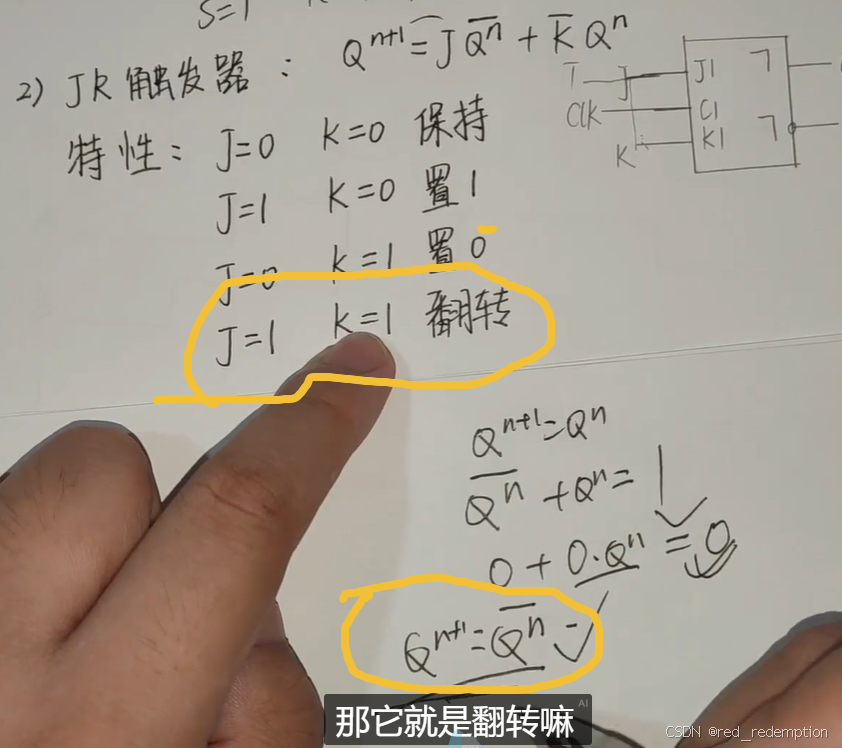 S=1
2) JK触发器： Qⁿ⁺¹=JQ̅ⁿ̅ + K̅Qⁿ
特性：J=0 K=0 保持
J=1 K=0 置1
J=0 K=1 置0
J=1 K=1 翻转
T J J1 ㄱ
Clk C1
K K1 ㄱ
Qⁿ⁺¹=Qⁿ
Q̅ⁿ̅ +Qⁿ= 1
0+0·Qⁿ =0
Qⁿ⁺¹=Q̅ⁿ̅
那它就是翻转嘛
AI
CSDN @red_redemption